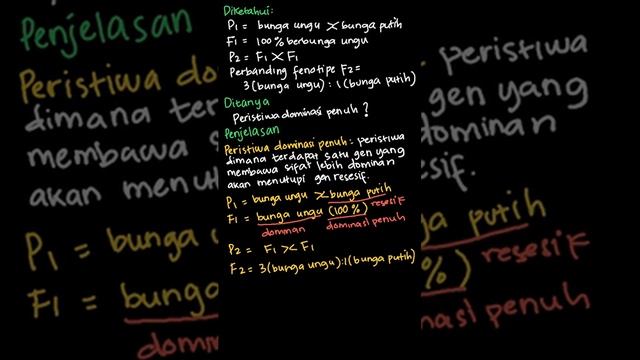 Diketahui:
P1 = bunga ungu X bunga putih
F1 = 100% berbunga ungu
P2 = F1 X F1
Perbanding fenotipe F2 =
3 (bunga ungu) : 1 (bunga putih)
Ditanya
Peristiwa dominasi penuh?
Penjelasan
Peristiwa dominasi penuh : peristiwa
dimana terdapat satu gen yang
membawa sifat lebih dominan
akan menutupi gen resesif.
P1 = bunga ungu X bunga putih
F1 = bunga ungu (100%) resesif
dominan dominasi penuh
P2 = F1 X F1
F2 = 3(bunga ungu):1(bunga putih)
Penjelasan
Peristiwa do
dimana terda
membawa s
akan menutu
P1 = bunga u
F1 = bunga
domin
peristiwa
gen yang
dominan
sif.
ga putih
%) resesif
nasi penuh